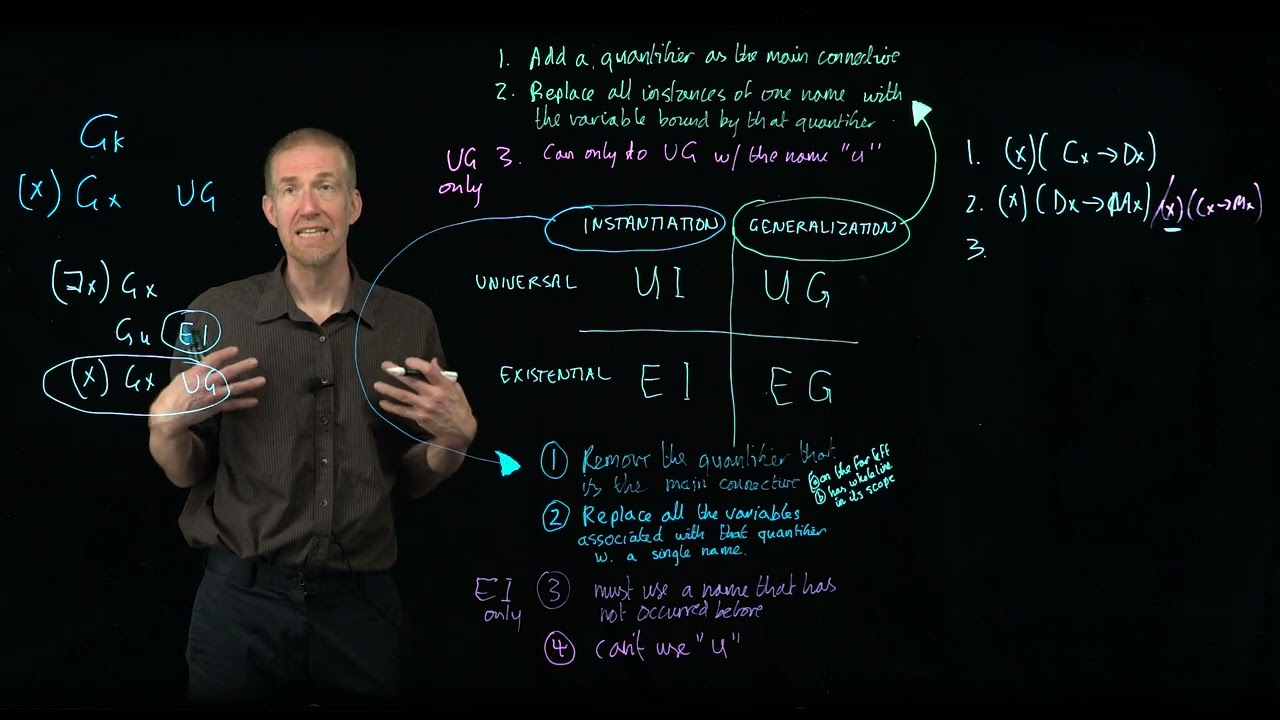 1. Add a quantifier as the main connective
2. Replace all instances of one name with
the variable bound by that quantifier
UG only
3. Can only do UG w/ the name "u"
Gk
(x) Gx UG
(∃x) Gx
Gu EI
(x) Gx UG
INSTANTIATION GENERALIZATION
UNIVERSAL UI UG
EXISTENTIAL EI EG
① Remove the quantifier that
is the main connective
ⓐ on the far left
ⓑ has whole line
in its scope
② Replace all the variables
associated with that quantifier
w. a single name.
EI only
③ must use a name that has
not occurred before
④ can't use "u"
1. (x)(Cx→Dx)
2. (x)(Dx→Mx) /(x)(Cx→Mx)
3.